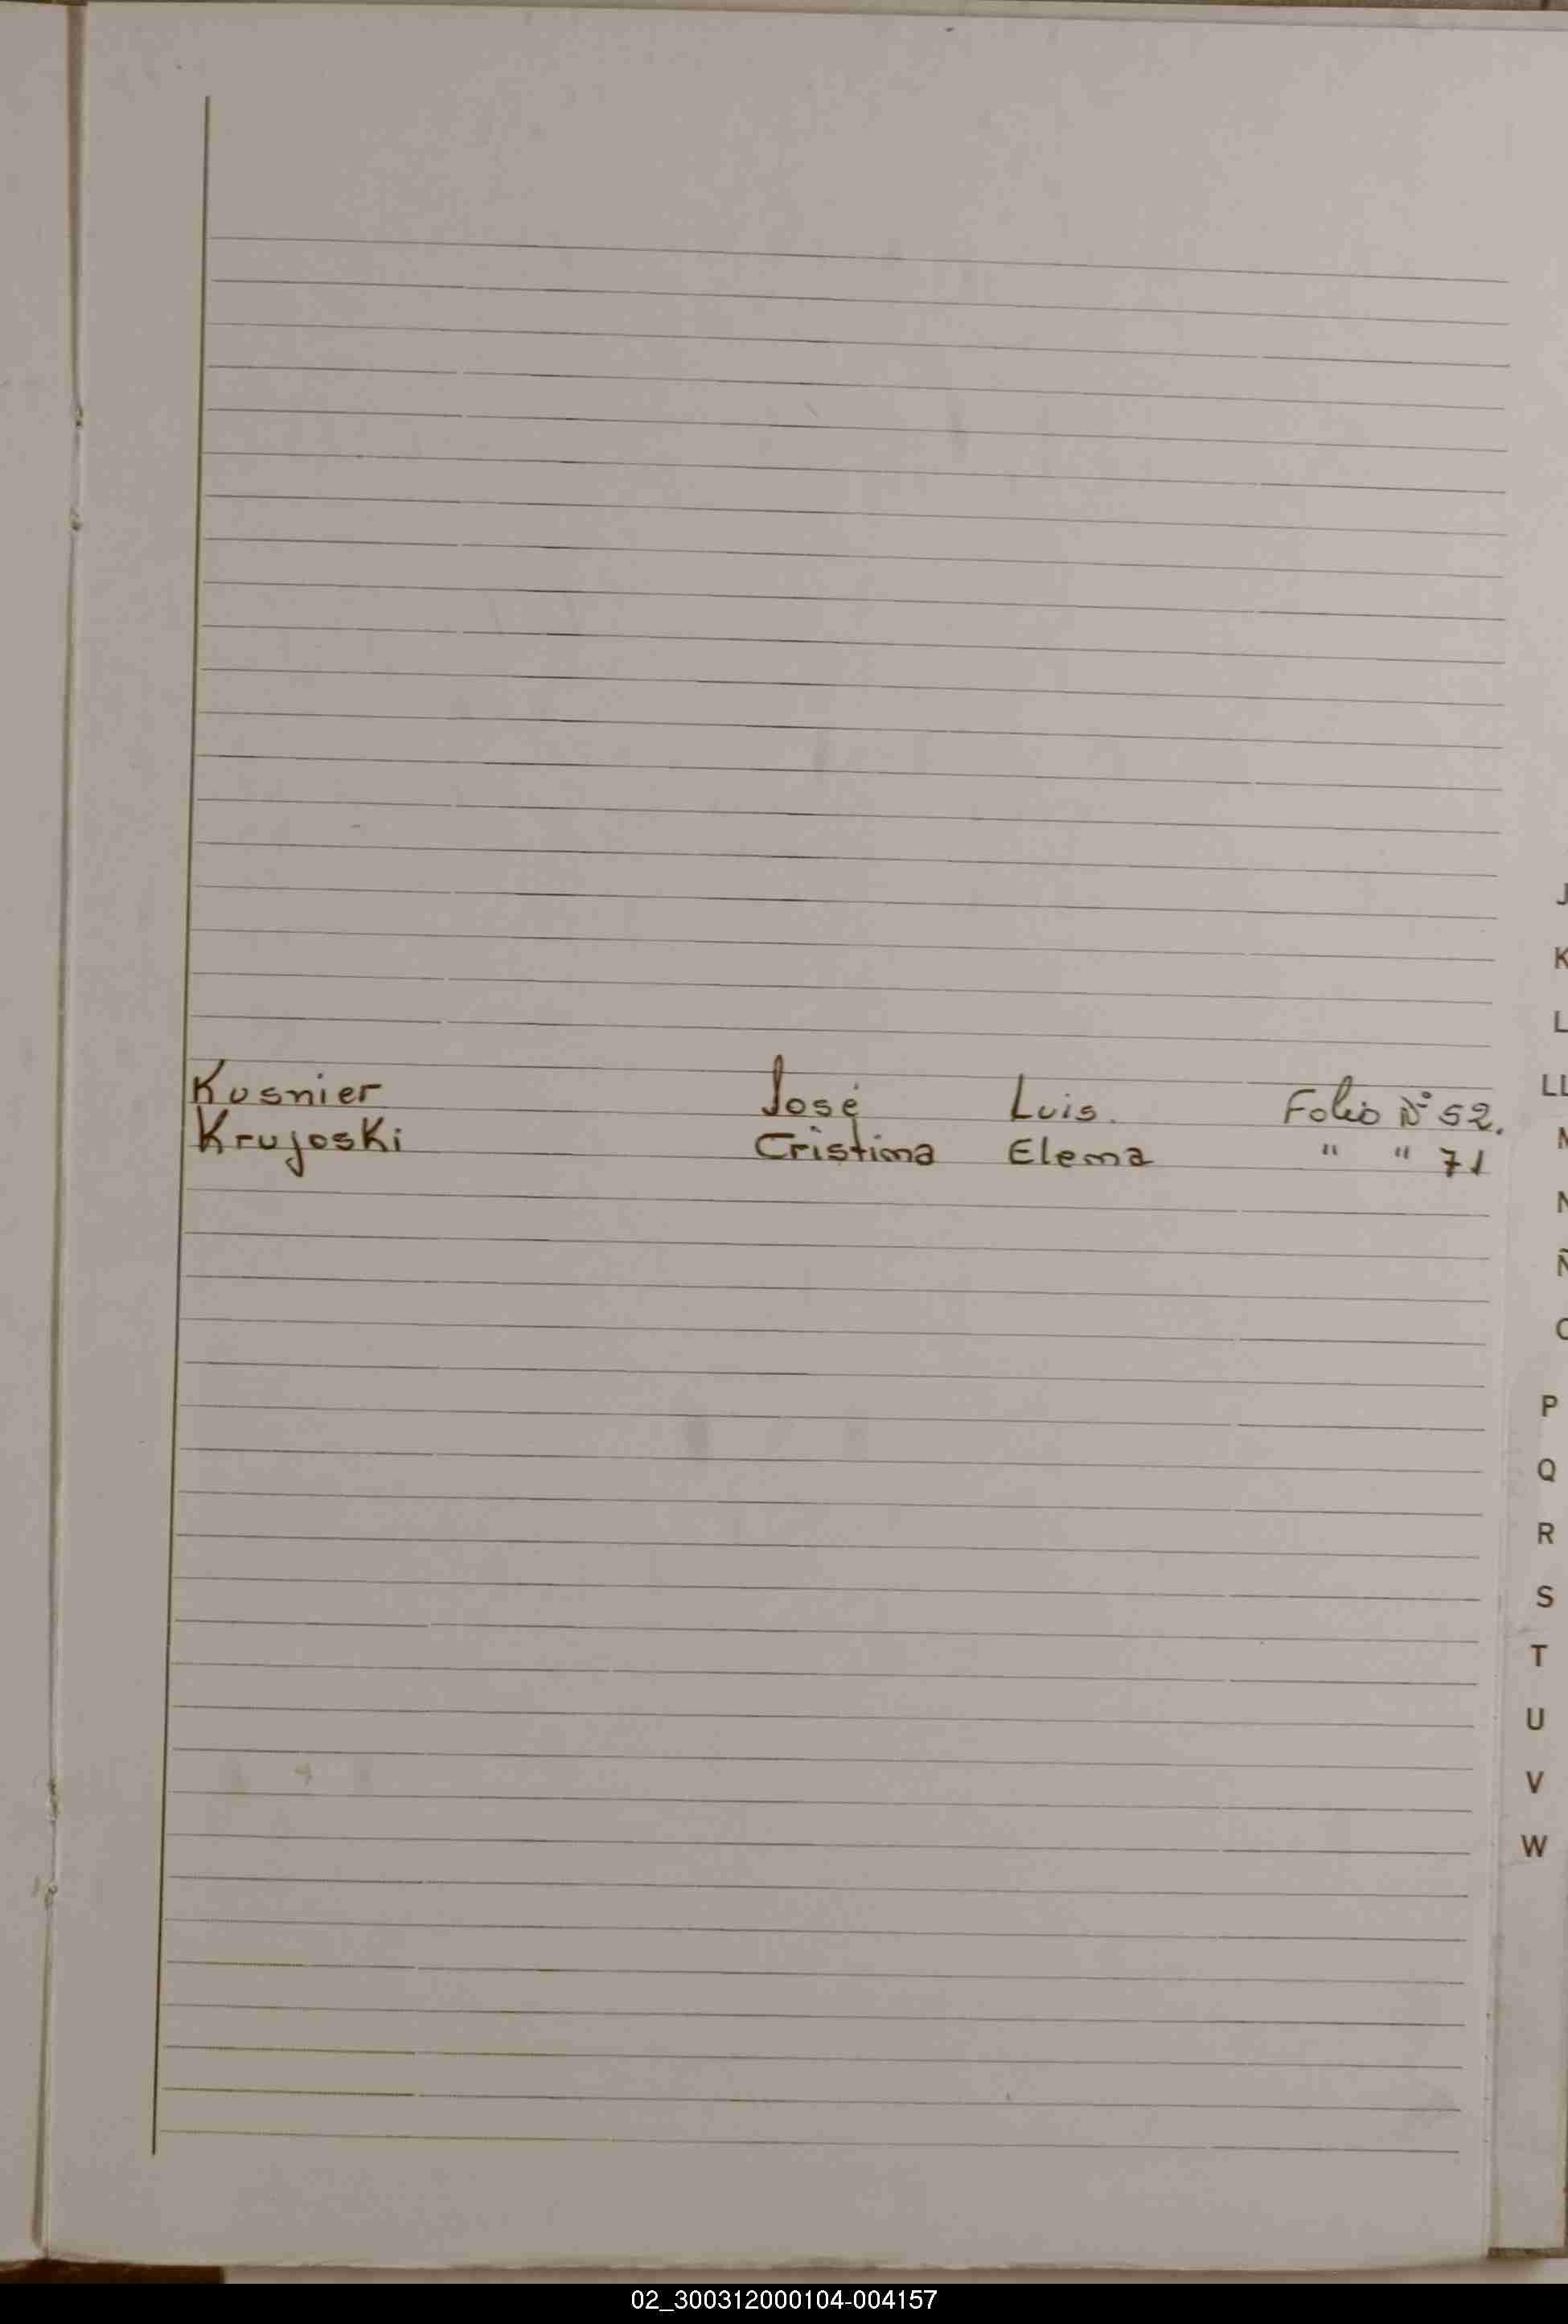 Kusnier José Luis. Folio Nº 52.
Krujoski Cristina Elena " " 71
J
K
L
LL
M
N
Ñ
O
P
Q
R
S
T
U
V
W
02_300312000104-004157